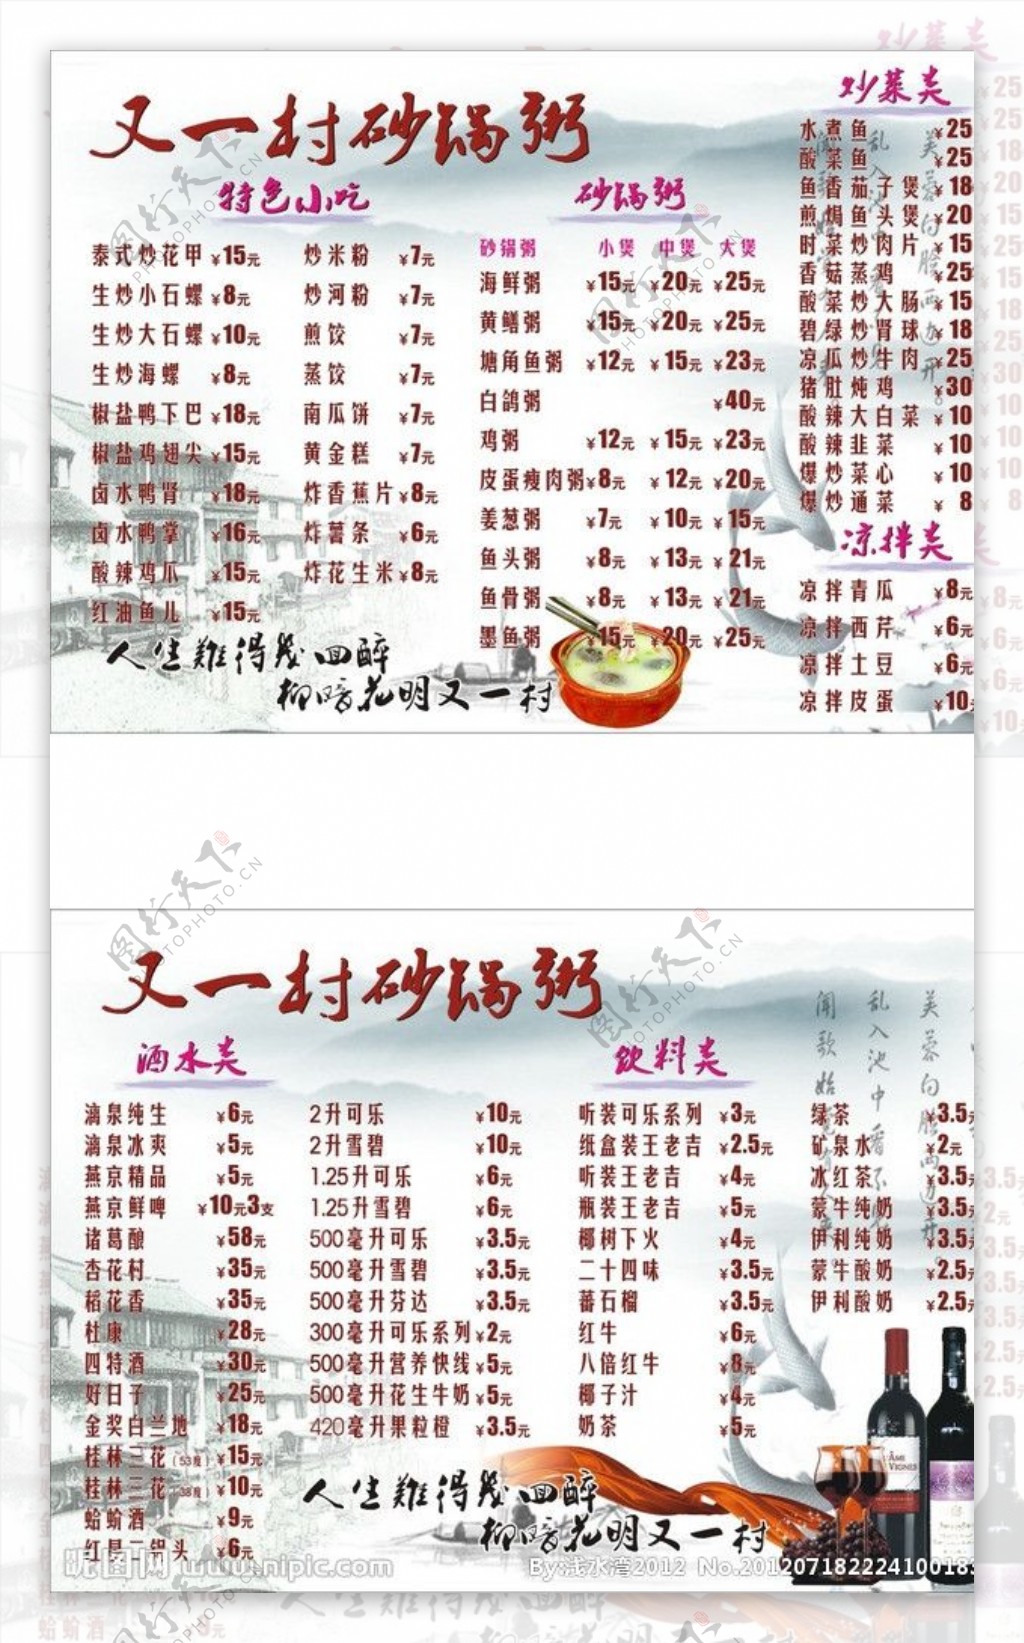 又一村砂锅粥
特色小吃
泰式炒花甲 ¥15元 炒米粉 ¥7元
生炒小石螺 ¥8元 炒河粉 ¥7元
生炒大石螺 ¥10元 煎饺 ¥7元
生炒海螺 ¥8元 蒸饺 ¥7元
椒盐鸭下巴 ¥18元 南瓜饼 ¥7元
椒盐鸡翅尖 ¥15元 黄金糕 ¥7元
卤水鸭肾 ¥18元 炸香蕉片 ¥8元
卤水鸭掌 ¥16元 炸薯条 ¥6元
酸辣鸡爪 ¥15元 炸花生米 ¥8元
红油鱼儿 ¥15元
砂锅粥
砂锅粥 小煲 中煲 大煲
海鲜粥 ¥15元 ¥20元 ¥25元
黄鳝粥 ¥15元 ¥20元 ¥25元
塘角鱼粥 ¥12元 ¥15元 ¥23元
白鸽粥 ¥40元
鸡粥 ¥12元 ¥15元 ¥23元
皮蛋瘦肉粥 ¥8元 ¥12元 ¥20元
姜葱粥 ¥7元 ¥10元 ¥15元
鱼头粥 ¥8元 ¥13元 ¥21元
鱼骨粥 ¥8元 ¥13元 ¥21元
墨鱼粥 ¥15元 ¥20元 ¥25元
炒菜类
水煮鱼 ¥25
酸菜鱼 ¥25
鱼香茄子煲 ¥18
煎焗鱼头煲 ¥20
时菜炒肉片 ¥15
香菇蒸鸡 ¥25
酸菜炒大肠 ¥15
碧绿炒肾球 ¥18
凉瓜炒牛肉 ¥25
猪肚炖鸡 ¥30
酸辣大白菜 ¥10
酸辣韭菜 ¥10
爆炒菜心 ¥10
爆炒通菜 ¥8
凉拌类
凉拌青瓜 ¥8元
凉拌西芹 ¥6元
凉拌土豆 ¥6元
凉拌皮蛋 ¥10元
人生難得幾回醉
柳暗花明又一村
又一村砂锅粥
酒水类
漓泉纯生 ¥6元
漓泉冰爽 ¥5元
燕京精品 ¥5元
燕京鲜啤 ¥10元3支
诸葛酿 ¥58元
杏花村 ¥35元
稻花香 ¥35元
杜康 ¥28元
四特酒 ¥30元
好日子 ¥25元
金奖白兰地 ¥18元
桂林三花(53度) ¥15元
桂林三花(38度) ¥10元
蛤蚧酒 ¥9元
红星二锅头 ¥6元
2升可乐 ¥10元
2升雪碧 ¥10元
1.25升可乐 ¥6元
1.25升雪碧 ¥6元
500毫升可乐 ¥3.5元
500毫升雪碧 ¥3.5元
500毫升芬达 ¥3.5元
300毫升可乐系列 ¥2元
500毫升营养快线 ¥5元
500毫升花生牛奶 ¥5元
420毫升果粒橙 ¥3.5元
饮料类
听装可乐系列 ¥3元
纸盒装王老吉 ¥2.5元
听装王老吉 ¥4元
瓶装王老吉 ¥5元
椰树下火 ¥4元
二十四味 ¥3.5元
蕃石榴 ¥3.5元
红牛 ¥6元
八倍红牛 ¥8元
椰子汁 ¥4元
奶茶 ¥5元
绿茶 ¥3.5元
矿泉水 ¥2元
冰红茶 ¥3.5元
蒙牛纯奶 ¥3.5元
伊利纯奶 ¥3.5元
蒙牛酸奶 ¥2.5元
伊利酸奶 ¥2.5元
芙蓉向脸两边开。
乱入池中看不见
闻歌始觉有人来。
人生難得幾回醉
柳暗花明又一村
昵图网 www.nipic.com
By:浅水湾2012 No.201207182224100183
图行天下 PHOTOPHOTO.CN